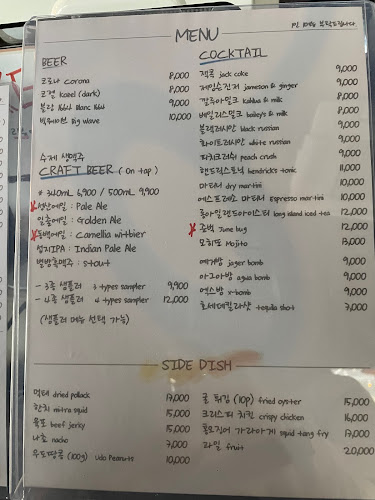 MENU
1인 1메뉴 부탁드립니다.
BEER
코로나 Corona 8,000
코젤 Kozel (dark) 8,000
블랑 1664 Blanc 1664 9,000
빅웨이브 Big wave 10,000
수제 생맥주
CRAFT BEER (On tap)
* 340ml 6,900 / 500ml 9,900
성산에일 : Pale Ale
일출에일 : Golden Ale
동백에일 : Camellia wit-bier
성지IPA : Indian Pale Ale
별방흑맥주 : stout
- 3종 샘플러 3 types sampler 9,900
- 4종 샘플러 4 types sampler 12,000
(샘플러 메뉴 선택 가능)
COCKTAIL
잭콕 jack coke 9,000
제임슨진저 jameson & ginger 9,000
깔루아밀크 Kahlua & milk 8,000
베일리스밀크 bailey's & milk 8,000
블랙러시안 black russian 9,000
화이트러시안 white russian 9,000
피치크러쉬 peach crush 9,000
핸드릭스토닉 hendrick's tonic 11,000
마티니 dry martini 10,000
에스프레소 마티니 Espresso martini 10,000
롱아일랜드아이스티 long island iced tea 12,000
준벅 June bug 12,000
모히또 Mojito 13,000
예거밤 jager bomb 9,000
아그와밤 agwa bomb 9,000
엑스밤 x-bomb 9,000
호세데킬라샷 tequila shot 7,000
SIDE DISH
먹태 dried pollack 17,000
한치 mitra squid 15,000
육포 beef jerky 15,000
나초 nacho 7,000
우도땅콩 (100g) Udo Peanuts 10,000
굴 튀김 (10p) fried oyster 15,000
크리스피 치킨 crispy chicken 16,000
통오징어 가라아게 squid tang fry 17,000
과일 fruit 20,000